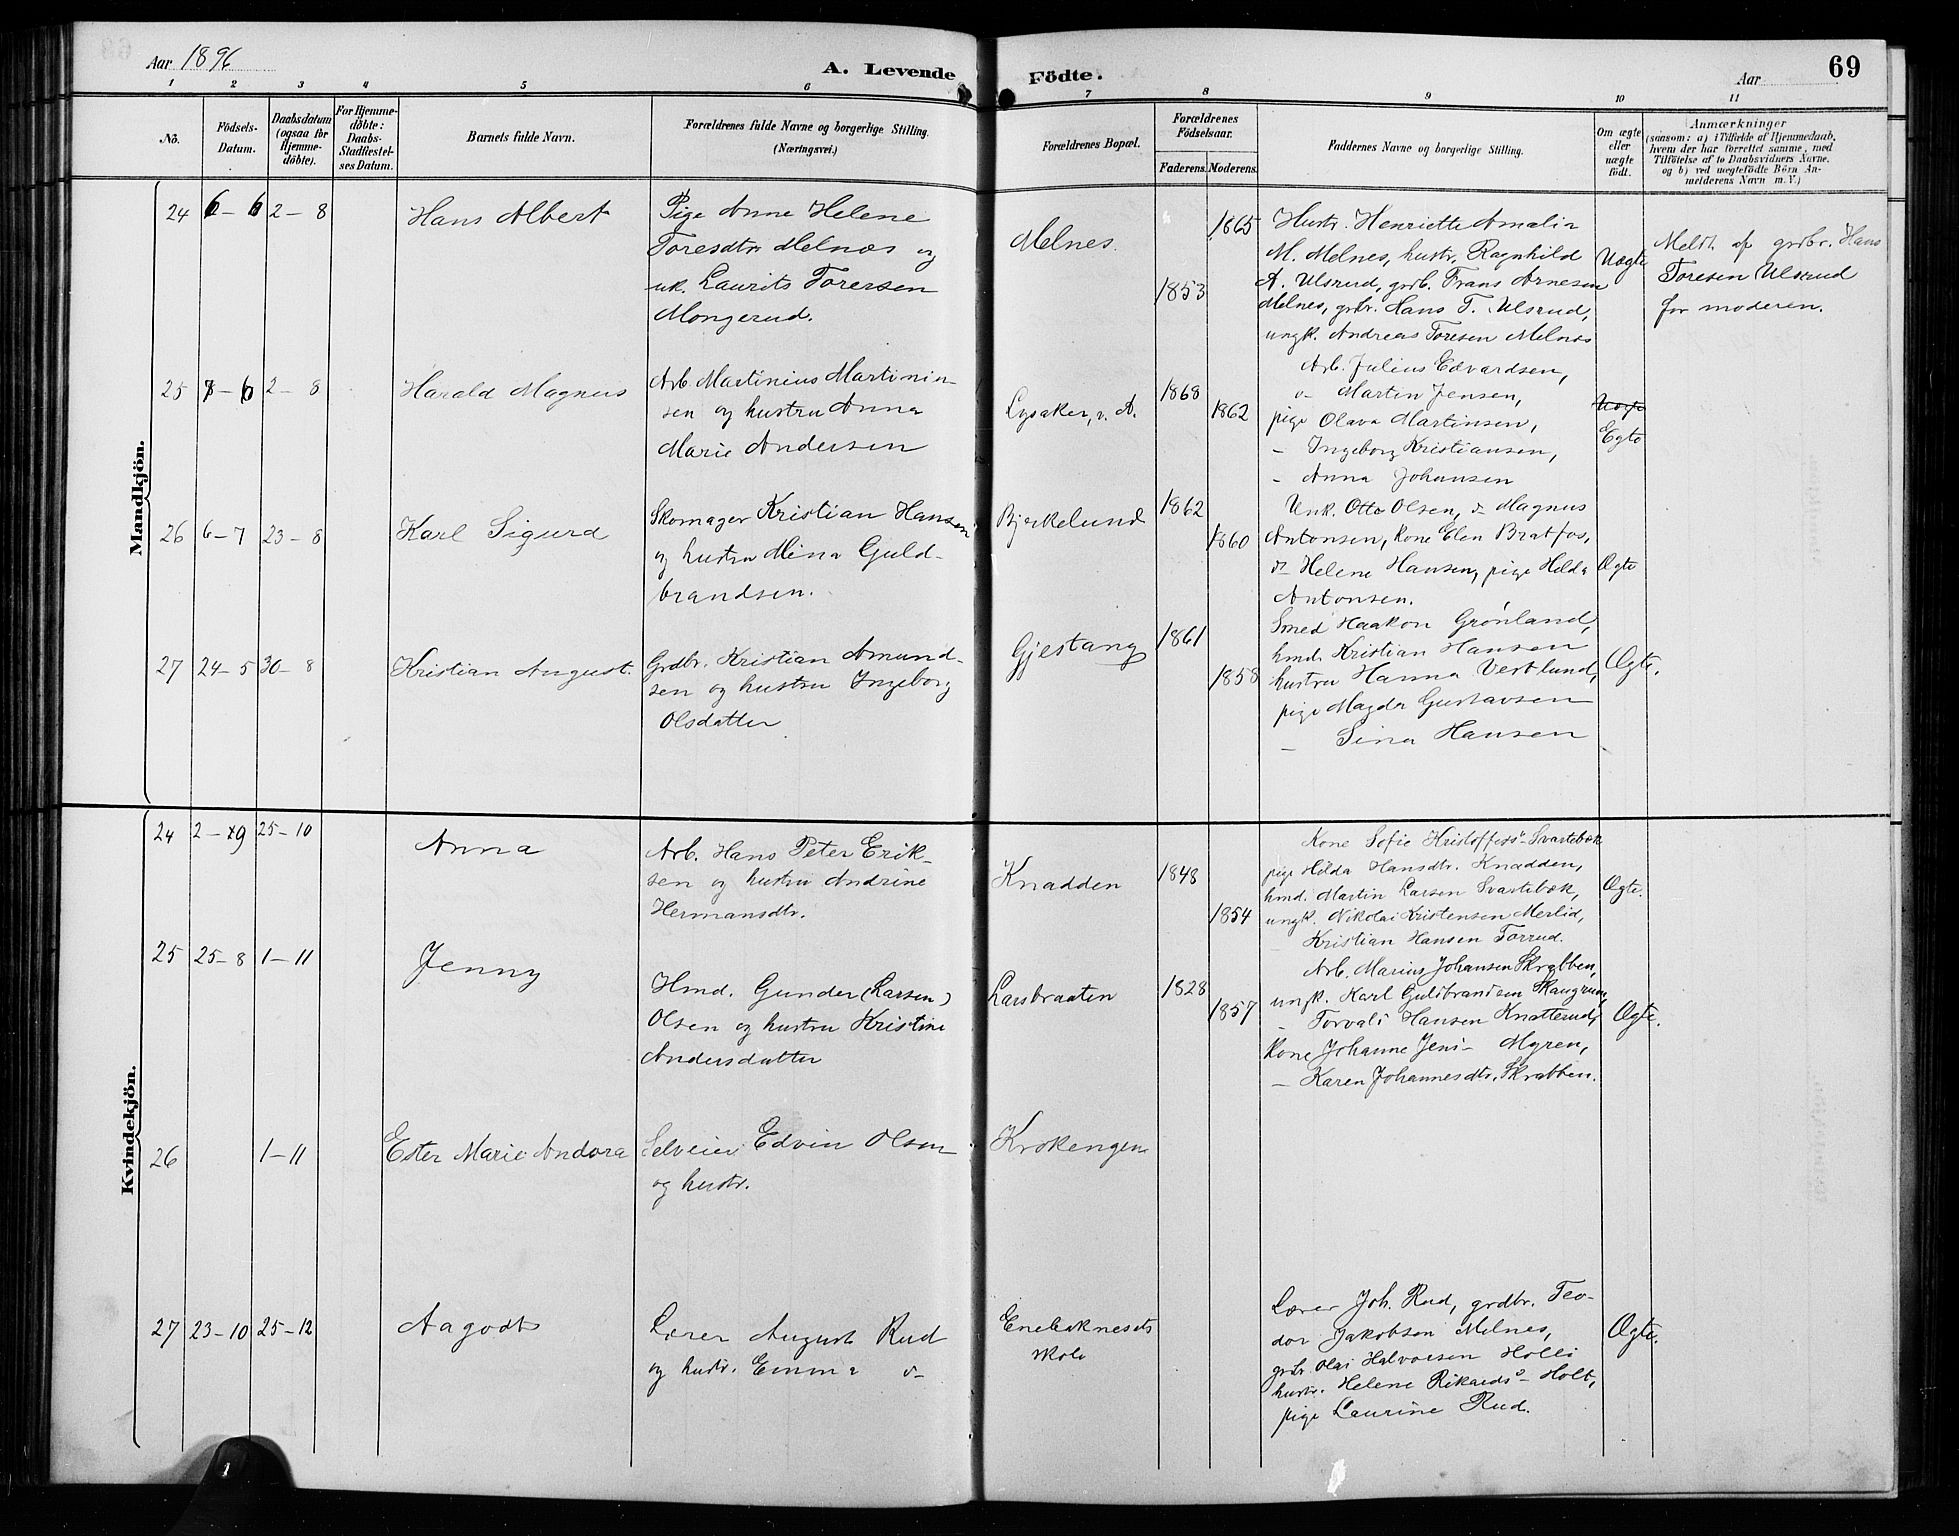 Aar 1896
A. Levende
Födte.
Aar
69
1 2 3 4 5 6 7 8 9 10 11
No.
Födsels-
Datum.
Daabsdatum
(ogsaa for
Hjemme-
döbte).
For Hjemme-
döbte:
Daabs-
Stadfæstel-
ses Datum.
Barnets fulde Navn.
Forældrenes fulde Navne og borgerlige Stilling.
(Næringsvei.)
Forældrenes Bopæl.
Forældrenes
Födselsaar.
Faderens. Moderens.
Faddernes Navne og borgerlige Stilling.
Om ægte
eller
uægte
födt.
Anmærkninger
(saasom: a) i Tilfælde af Hjemmedaab,
hvem der har forrettet samme, med
Tilföielse af to Daabsvidners Navne.
og b) ved uægtefödte Börn An-
melderens Navn m. V.)
Mandkjön.
24 6–6 2–8
Hans Albert
Pige Anne Helene
Toresdtr Melnæs og
uk. Laurits Toresen
Mongerud.
Melnes.
1853
1865
Hustr. Henriette Amalia
M. Melnes, hustr. Ragnhild
A. Ulsrud, grdb. Frans Arnesen
Melnes, grbr. Hans T. Ulsrud,
ungk. Andreas Toresen Melnes
Uægte
Meldt af grdbr. Hans
Toresen Ulsrud
for moderen.
25 8–6 2–8
Harald Magnus
Arb. Martinius Martinin-
sen og hustru Anna
Marie Andersen
Lysaker, v. A.
1868
1862
Arb. Julius Edvardsen,
o– Martin Jensen,
pige Olava Martinsen,
– Ingeborg Kristiansen,
– Anna Johansen
Uægte
Egte
26 6–7 23–8
Karl Sigurd
Skomager Kristian Hansen
og hustru Mina Guld-
brandsen.
Bjerkelund
1862
1860
Unk. Otto Olsen, do Magnus
Antonsen, Kone Elen Bratfos,
do Helene Hansen, pige Hilda
Antonsen.
Ægte
27 24–5 30–8
Kristian August.
Grdbr. Kristian Amund-
sen og hustru Ingeborg
Olsdatter
Gjestang
1861
1858
Smed Haakon Grønland,
hmd. Kristian Hansen
hustru Hanna Vestlund,
pige Magda Gustavsen
– Sina Hansen
Ægte.
Kvindekjön.
24 2–9 25–10
Anna
Arb. Hans Peter Erik-
sen og hustru Andrine
Hermansdtr.
Knadden
1848
1854
Kone Sofie Kristoffersd– Svartebæk
pige Hilda Hansdtr. Knadden,
hmd. Martin Larsen Svartebæk,
ungk. Nikolai Kristensen Merlid,
– Kristian Hansen Torrud.
Ægte.
25 25–8 1–11
Jenny
Hmd. Gunder (Larsen)
Olsen og hustru Kristine
Andersdatter
Larsbraaten
1828
1857
Arb. Marius Johansen Skrabben,
ungk. Karl Guldbrandsen Skaugrum,
– Torvald Hansen Knatterud,
Kone Johanne Jens– Myren,
– Karen Johannesdtr. Skrabben.
Ægte.
26 1–11
Ester Marie Andora
Selveier Edvin Olsen
og hustr.
Krokengen
27 23–10 25–12
Aagodt
Lærer August Rud
og hustr. Emma o–
Enebaknesets
skole
Lærer Joh. Rud, grdbr. Teo-
dor Jakobsen Melnes,
grbr. Olai Halvorsen Holli
hustr. Helene Rikardsd– Holt,
pige Laurine Rud.
Ægte.